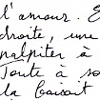 l'amour. E
droite, une
palpiter à
Toute à so
la buvant